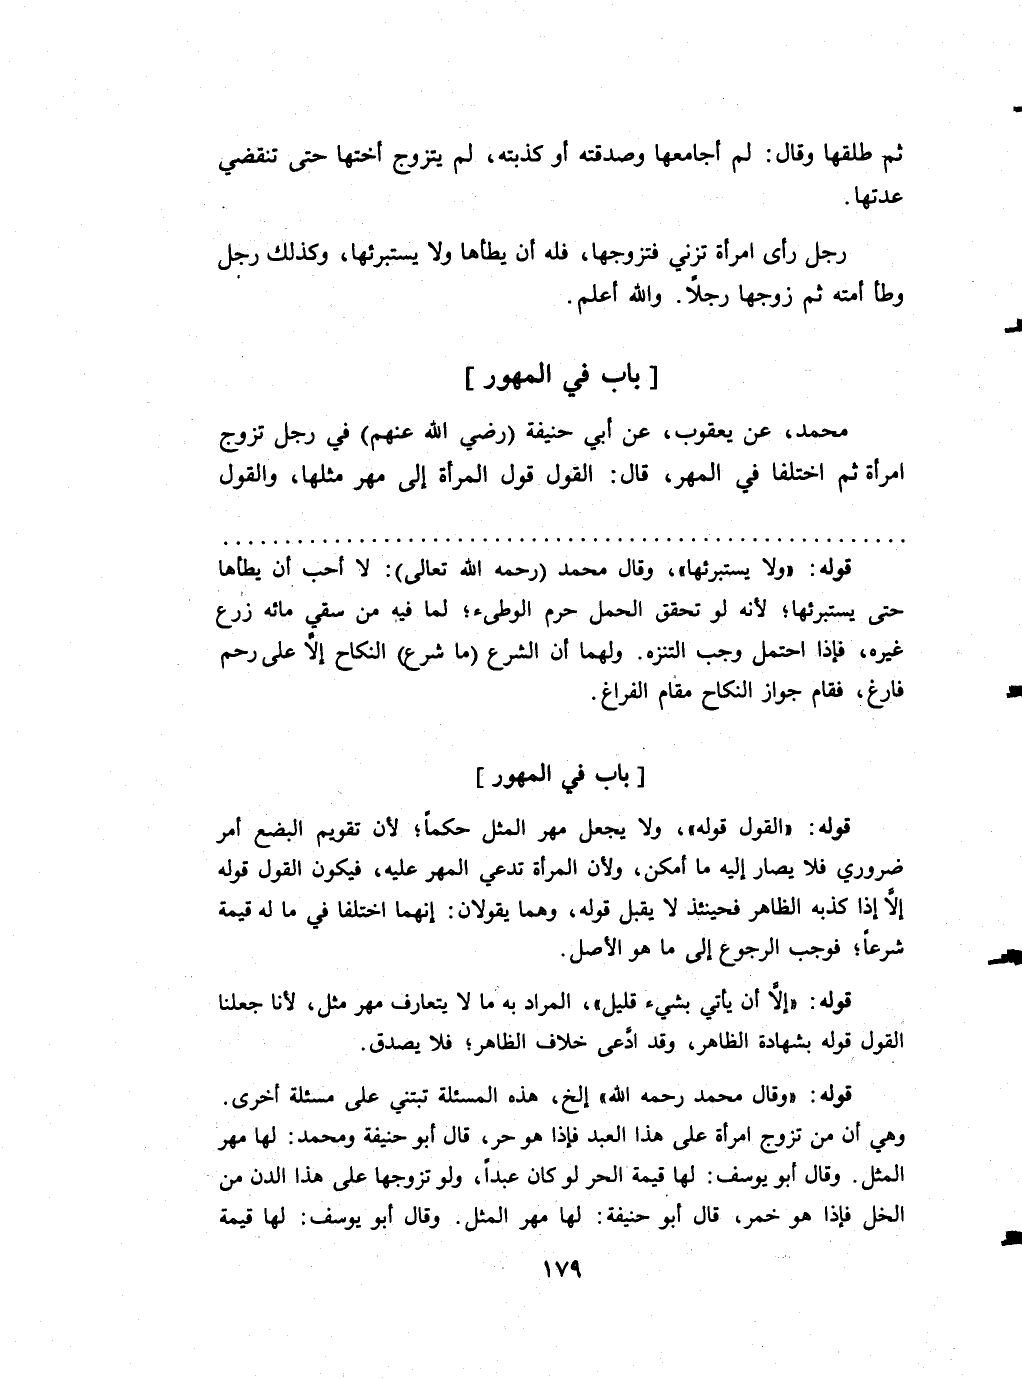 ثم طلقها وقال: لم أجامعها وصدقته أو كذبته، لم يتزوج أختها حتى تنقضي
عدتها.
رجل رأى امرأة تزني فتزوجها، فله أن يطأها ولا يستبرئها، وكذلك رجل
وطأ أمته ثم زوجها رجلاً. والله أعلم.
[ باب في المهور ]
محمد، عن يعقوب، عن أبي حنيفة (رضي الله عنهم) في رجل تزوج
امرأة ثم اختلفا في المهر، قال: القول قول المرأة إلى مهر مثلها، والقول
قوله: «ولا يستبرئها»، وقال محمد (رحمه الله تعالى): لا أحب أن يطأها
حتى يستبرئها؛ لأنه لو تحقق الحمل حرم الوطىء؛ لما فيه من سقي مائه زرع
غيره، فإذا احتمل وجب التنزه. ولهما أن الشرع (ما شرع) النكاح إلَّا على رحم
فارغ، فقام جواز النكاح مقام الفراغ.
[ باب في المهور ]
قوله: «القول قوله»، ولا يجعل مهر المثل حكماً؛ لأن تقويم البضع أمر
ضروري فلا يصار إليه ما أمكن، ولأن المرأة تدعي المهر عليه، فيكون القول قوله
إلَّا إذا كذبه الظاهر فحينئذ لا يقبل قوله، وهما يقولان: إنهما اختلفا في ما له قيمة
شرعاً؛ فوجب الرجوع إلى ما هو الأصل.
قوله: «إلَّا أن يأتي بشيء قليل»، المراد به ما لا يتعارف مهر مثل، لأنا جعلنا
القول قوله بشهادة الظاهر، وقد ادَّعى خلاف الظاهر؛ فلا يصدق.
قوله: «وقال محمد رحمه الله» إلخ، هذه المسئلة تبتني على مسئلة أخرى.
وهي أن من تزوج امرأة على هذا العبد فإذا هو حر، قال أبو حنيفة ومحمد: لها مهر
المثل. وقال أبو يوسف: لها قيمة الحر لو كان عبداً، ولو تزوجها على هذا الدن من
الخل فإذا هو خمر، قال أبو حنيفة: لها مهر المثل. وقال أبو يوسف: لها قيمة
١٧٩